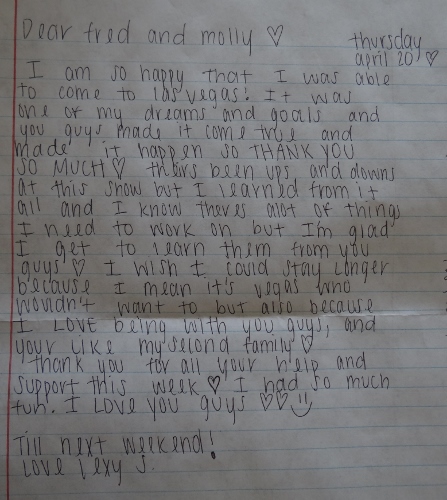 Dear fred and molly ♡
thursday
april 20 ♡
I am so happy that I was able
to come to las vegas! It was
one of my dreams and goals and
you guys made it come true and
made it happen so THANK YOU
SO MUCH ♡ thers been ups and downs
at this show but I learned from it
all and I know theres alot of things
I need to work on but I'm glad
I get to learn them from you
guys ♡ I wish I could stay longer
because I mean it's vegas who
wouldn't want to but also because
I LOVE being with you guys, and
your like my second family ♡
thank you for all your help and
support this week ♡ I had so much
fun. I Love you guys ♡♡☺
Till next weekend!
Love Lexy S.